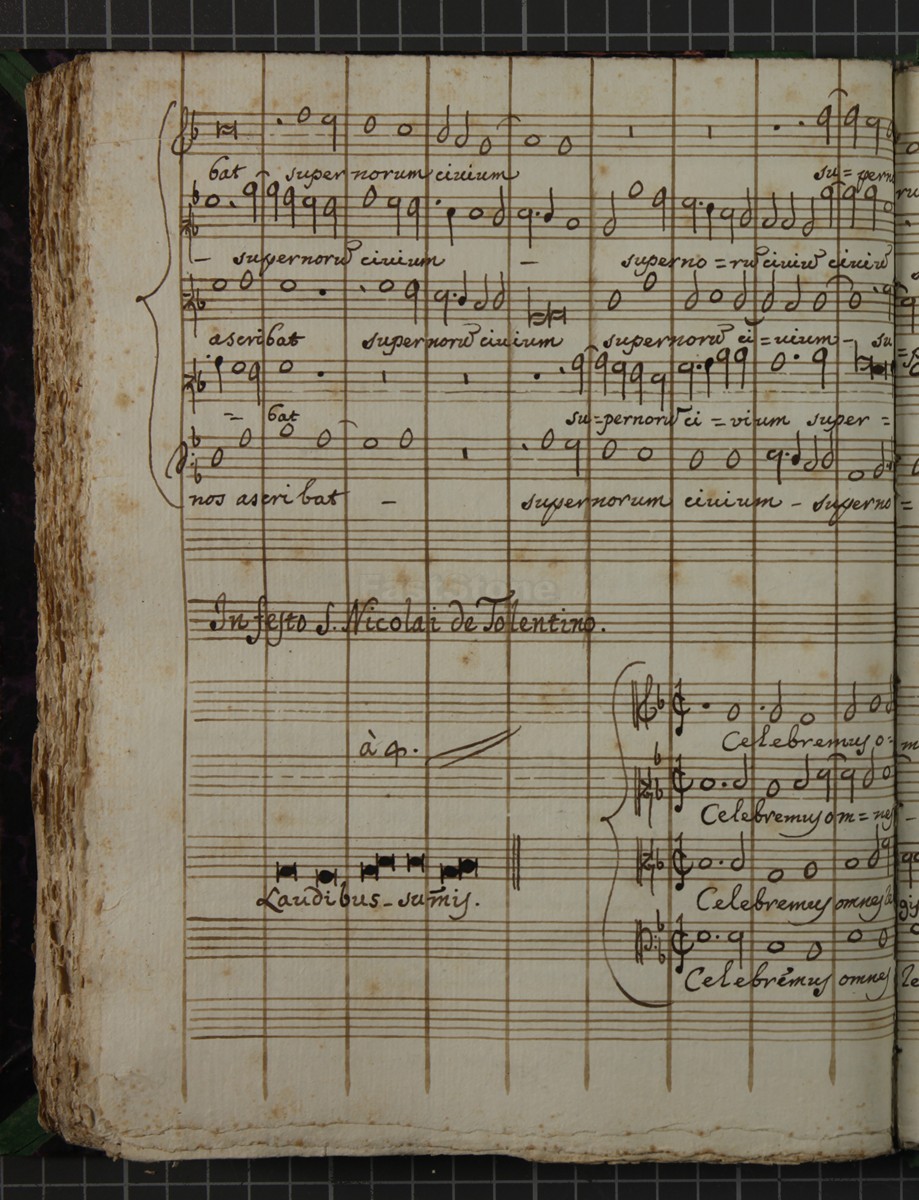 bat supernorum ciuium su=pern
– supernorũ ciuium – superno=rũ ciuiũ ciuiũ
ascribat supernorũ ciuium supernorũ ci=uium – su
= bat su=pernorũ ci=vium super=
nos ascribat – supernorum ciuium – superno=
FastStone
In festo S. Nicolai de Tolentino.
à 4.
Celebremus o=m
Celebremus om=nes –
Laudibus – sum̃is.
Celebremus omnes
Celebremus omnes le